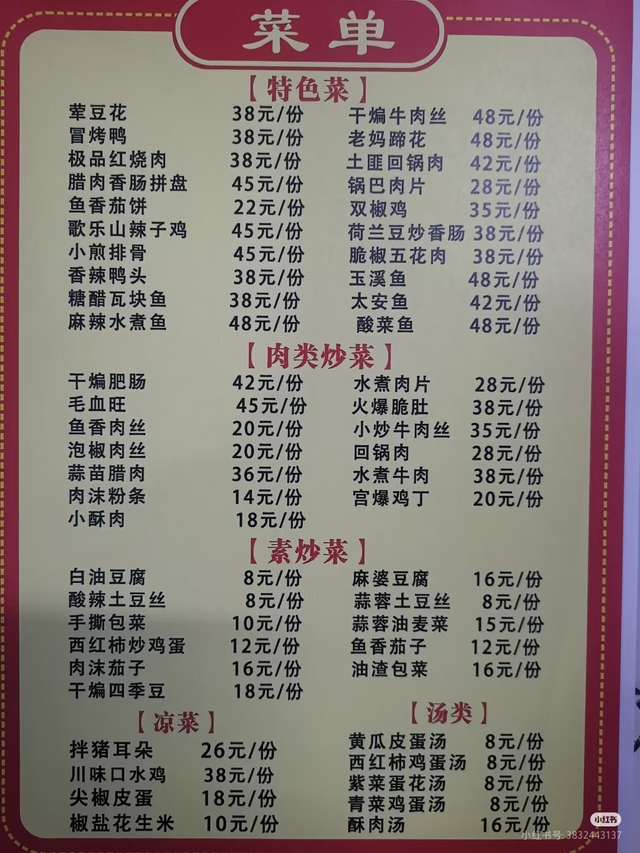 菜单
【特色菜】
荤豆花 38元/份 干煸牛肉丝 48元/份
冒烤鸭 38元/份 老妈蹄花 48元/份
极品红烧肉 38元/份 土匪回锅肉 42元/份
腊肉香肠拼盘 45元/份 锅巴肉片 28元/份
鱼香茄饼 22元/份 双椒鸡 35元/份
歌乐山辣子鸡 45元/份 荷兰豆炒香肠 38元/份
小煎排骨 45元/份 脆椒五花肉 38元/份
香辣鸭头 38元/份 玉溪鱼 48元/份
糖醋瓦块鱼 38元/份 太安鱼 42元/份
麻辣水煮鱼 48元/份 酸菜鱼 48元/份
【肉类炒菜】
干煸肥肠 42元/份 水煮肉片 28元/份
毛血旺 45元/份 火爆脆肚 38元/份
鱼香肉丝 20元/份 小炒牛肉丝 35元/份
泡椒肉丝 20元/份 回锅肉 28元/份
蒜苗腊肉 36元/份 水煮牛肉 38元/份
肉沫粉条 14元/份 宫爆鸡丁 20元/份
小酥肉 18元/份
【素炒菜】
白油豆腐 8元/份 麻婆豆腐 16元/份
酸辣土豆丝 8元/份 蒜蓉土豆丝 8元/份
手撕包菜 10元/份 蒜蓉油麦菜 15元/份
西红柿炒鸡蛋 12元/份 鱼香茄子 12元/份
肉沫茄子 16元/份 油渣包菜 16元/份
干煸四季豆 18元/份
【凉菜】
拌猪耳朵 26元/份
川味口水鸡 38元/份
尖椒皮蛋 18元/份
椒盐花生米 10元/份
【汤类】
黄瓜皮蛋汤 8元/份
西红柿鸡蛋汤 8元/份
紫菜蛋花汤 8元/份
青菜鸡蛋汤 8元/份
酥肉汤 16元/份
小红书
小红书号:3832443137